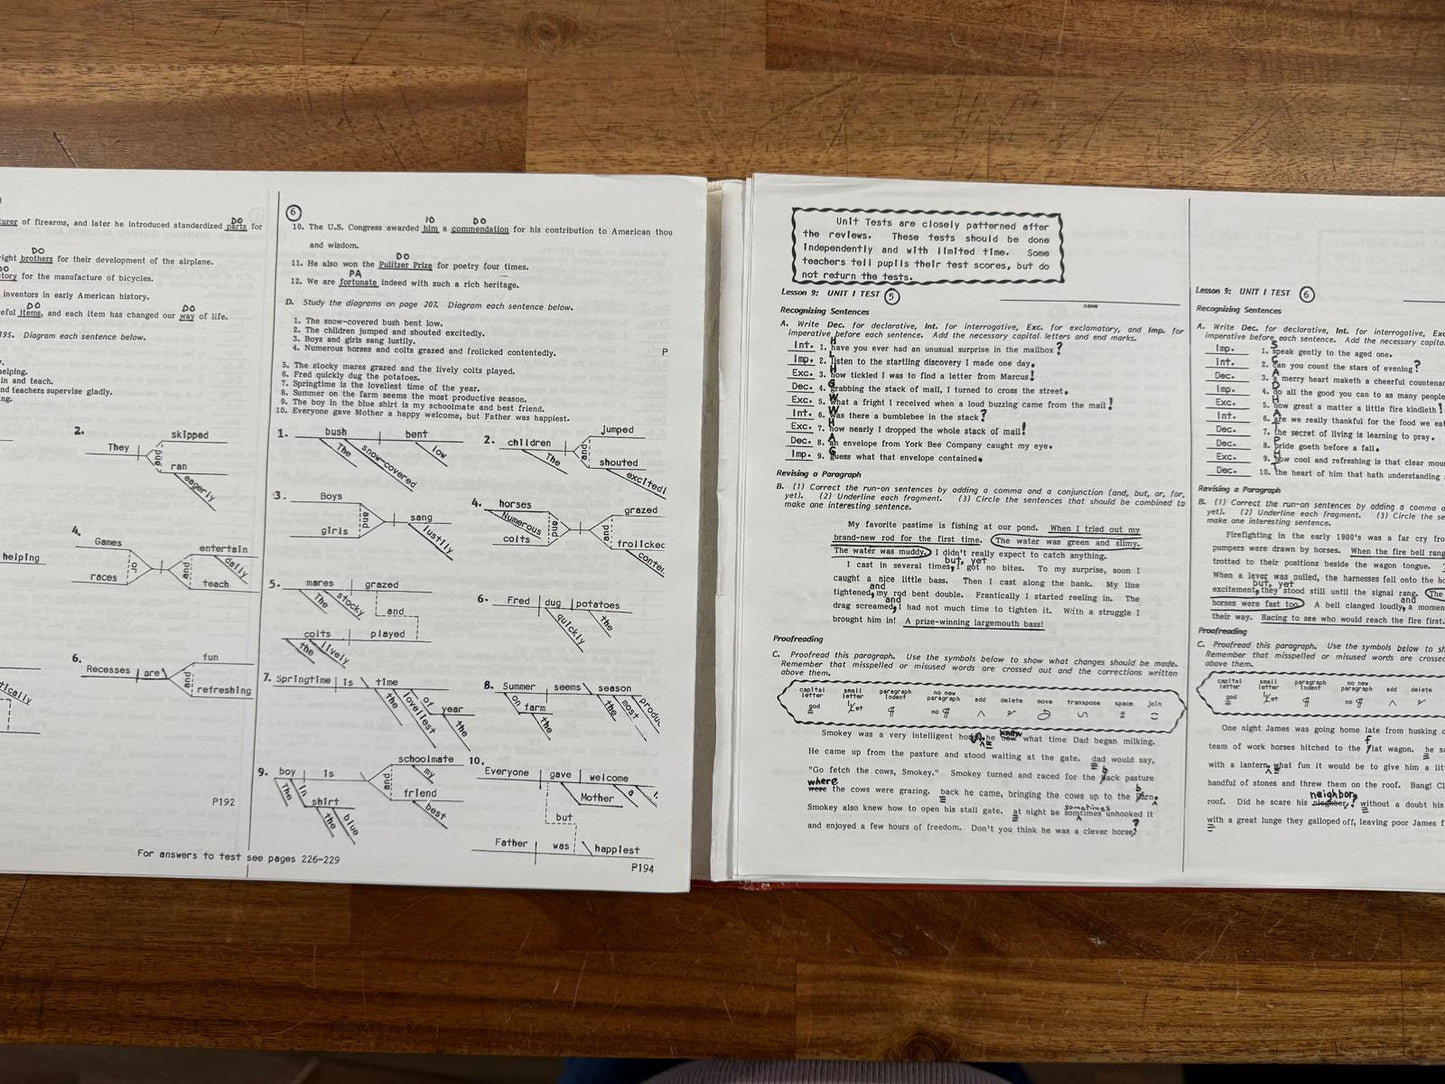 urer of firearms, and later he introduced standardized parts for
DO
right brothers for their development of the airplane.
DO
tory for the manufacture of bicycles.
DO
inventors in early American history.
eful items, and each item has changed our way of life.
DO DO
195. Diagram each sentence below.
helping.
in and teach.
nd teachers supervise gladly.
ng.
2.
They
and
skipped
ran
eagerly
helping
4.
Games
races
or
and
entertain
daily
teach
6.
Recesses are
and
fun
refreshing
tically
P192
6
IO DO
10. The U.S. Congress awarded him a commendation for his contribution to American thou
and wisdom.
DO
11. He also won the Pulitzer Prize for poetry four times.
PA
12. We are fortunate indeed with such a rich heritage.
D. Study the diagrams on page 207. Diagram each sentence below.
1. The snow-covered bush bent low.
2. The children jumped and shouted excitedly.
3. Boys and girls sang lustily.
4. Numerous horses and colts grazed and frolicked contentedly.
P
5. The stocky mares grazed and the lively colts played.
6. Fred quickly dug the potatoes.
7. Springtime is the loveliest time of the year.
8. Summer on the farm seems the most productive season.
9. The boy in the blue shirt is my schoolmate and best friend.
10. Everyone gave Mother a happy welcome, but Father was happiest.
1. bush bent
The snow-covered low
2. children
The
and
jumped
shouted
excitedl
3. Boys
girls
and
sang
lustily
4. horses
Numerous
colts
and
and
grazed
frolicked
conte
5. mares grazed
The stocky
and
colts played
the lively
6. Fred dug potatoes
quickly the
7. Springtime is time
the loveliest of
year
the
8. Summer seems season
on farm the
the most produc
9. boy is
The in
shirt
the blue
and
schoolmate
my
friend
best
10.
Everyone gave welcome
Mother a
but
Father was happiest
P194
For answers to test see pages 226-229
Unit Tests are closely patterned after
the reviews. These tests should be done
independently and with limited time. Some
teachers tell pupils their test scores, but do
not return the tests.
Lesson 9: UNIT I TEST 5
Recognizing Sentences
A. Write Dec. for declarative, Int. for interrogative, Exc. for exclamatory, and Imp. for
imperative before each sentence. Add the necessary capital letters and end marks.
Int. 1. Have you ever had an unusual surprise in the mailbox?
Imp. 2. Listen to the startling discovery I made one day.
Exc. 3. How tickled I was to find a letter from Marcus!
Dec. 4. Grabbing the stack of mail, I turned to cross the street.
Exc. 5. What a fright I received when a loud buzzing came from the mail!
Int. 6. Was there a bumblebee in the stack?
Exc. 7. How nearly I dropped the whole stack of mail!
Dec. 8. An envelope from York Bee Company caught my eye.
Imp. 9. Guess what that envelope contained.
Revising a Paragraph
B. (1) Correct the run-on sentences by adding a comma and a conjunction (and, but, or, for,
yet). (2) Underline each fragment. (3) Circle the sentences that should be combined to
make one interesting sentence.
My favorite pastime is fishing at our pond. When I tried out my
brand-new rod for the first time. The water was green and slimy.
The water was muddy. I didn't really expect to catch anything.
but, yet
I cast in several times, I got no bites. To my surprise, soon I
caught a nice little bass. Then I cast along the bank. My line
and
tightened, my rod bent double. Frantically I started reeling in. The
and
drag screamed, I had not much time to tighten it. With a struggle I
brought him in! A prize-winning largemouth bass!
Proofreading
C. Proofread this paragraph. Use the symbols below to show what changes should be made.
Remember that misspelled or misused words are crossed out and the corrections written
above them.
capital letter small letter paragraph indent no new paragraph add delete move transpose space join
god Yet ¶ no ¶
know
Smokey was a very intelligent horse, he now what time Dad began milking.
He came up from the pasture and stood waiting at the gate. dad would say,
"Go fetch the cows, Smokey." Smokey turned and raced for the back pasture
where
were the cows were grazing. back he came, bringing the cows up to the barn.
sometimes
Smokey also knew how to open his stall gate. at night he somtimes unhooked it
and enjoyed a few hours of freedom. Don't you think he was a clever horse?
Lesson 9: UNIT I TEST 6
Recognizing Sentences
A. Write Dec. for declarative, Int. for interrogative, Exc
imperative before each sentence. Add the necessary capita
Imp. 1. Speak gently to the aged one.
Int. 2. Can you count the stars of evening?
Dec. 3. A merry heart maketh a cheerful countenan
Imp. 4. Do all the good you can to as many people
Exc. 5. How great a matter a little fire kindleth!
Int. 6. Are we really thankful for the food we eat
Dec. 7. The secret of living is learning to pray.
Dec. 8. Pride goeth before a fall.
Exc. 9. How cool and refreshing is that clear mou
Dec. 10. The heart of him that hath understanding
Revising a Paragraph
B. (1) Correct the run-on sentences by adding a comma a
yet). (2) Underline each fragment. (3) Circle the se
make one interesting sentence.
Firefighting in the early 1900's was a far cry fro
pumpers were drawn by horses. When the fire bell rang
trotted to their positions beside the wagon tongue.
When a lever was pulled, the harnesses fell onto the ho
but, yet
excitement, they stood still until the signal rang. The
and
horses were fast too. A bell clanged loudly, a momen
their way. Racing to see who would reach the fire first.
Proofreading
C. Proofread this paragraph. Use the symbols below to sh
Remember that misspelled or misused words are crosse
above them.
capital letter small letter paragraph indent no new paragraph add delete
god Yet ¶ no ¶
One night James was going home late from husking c
team of work horses hitched to the flat wagon. he s
with a lantern, what fun it would be to give him a lit
handful of stones and threw them on the roof. Bang! Cl
neighbor
roof. Did he scare his nieghber! without a doubt his
with a great lunge they galloped off, leaving poor James f